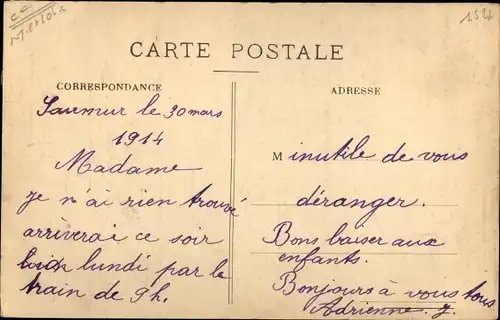 1527
CARTE POSTALE
CORRESPONDANCE
Saumur le 30 mars
1914
Madame
je n'ai rien trouvé
arriverai ce soir
lundi par le
train de 9h.
ADRESSE
M inutile de vous
déranger.
Bons baiser aux
enfants.
Bonjours à vous tous
Adrienne. J.